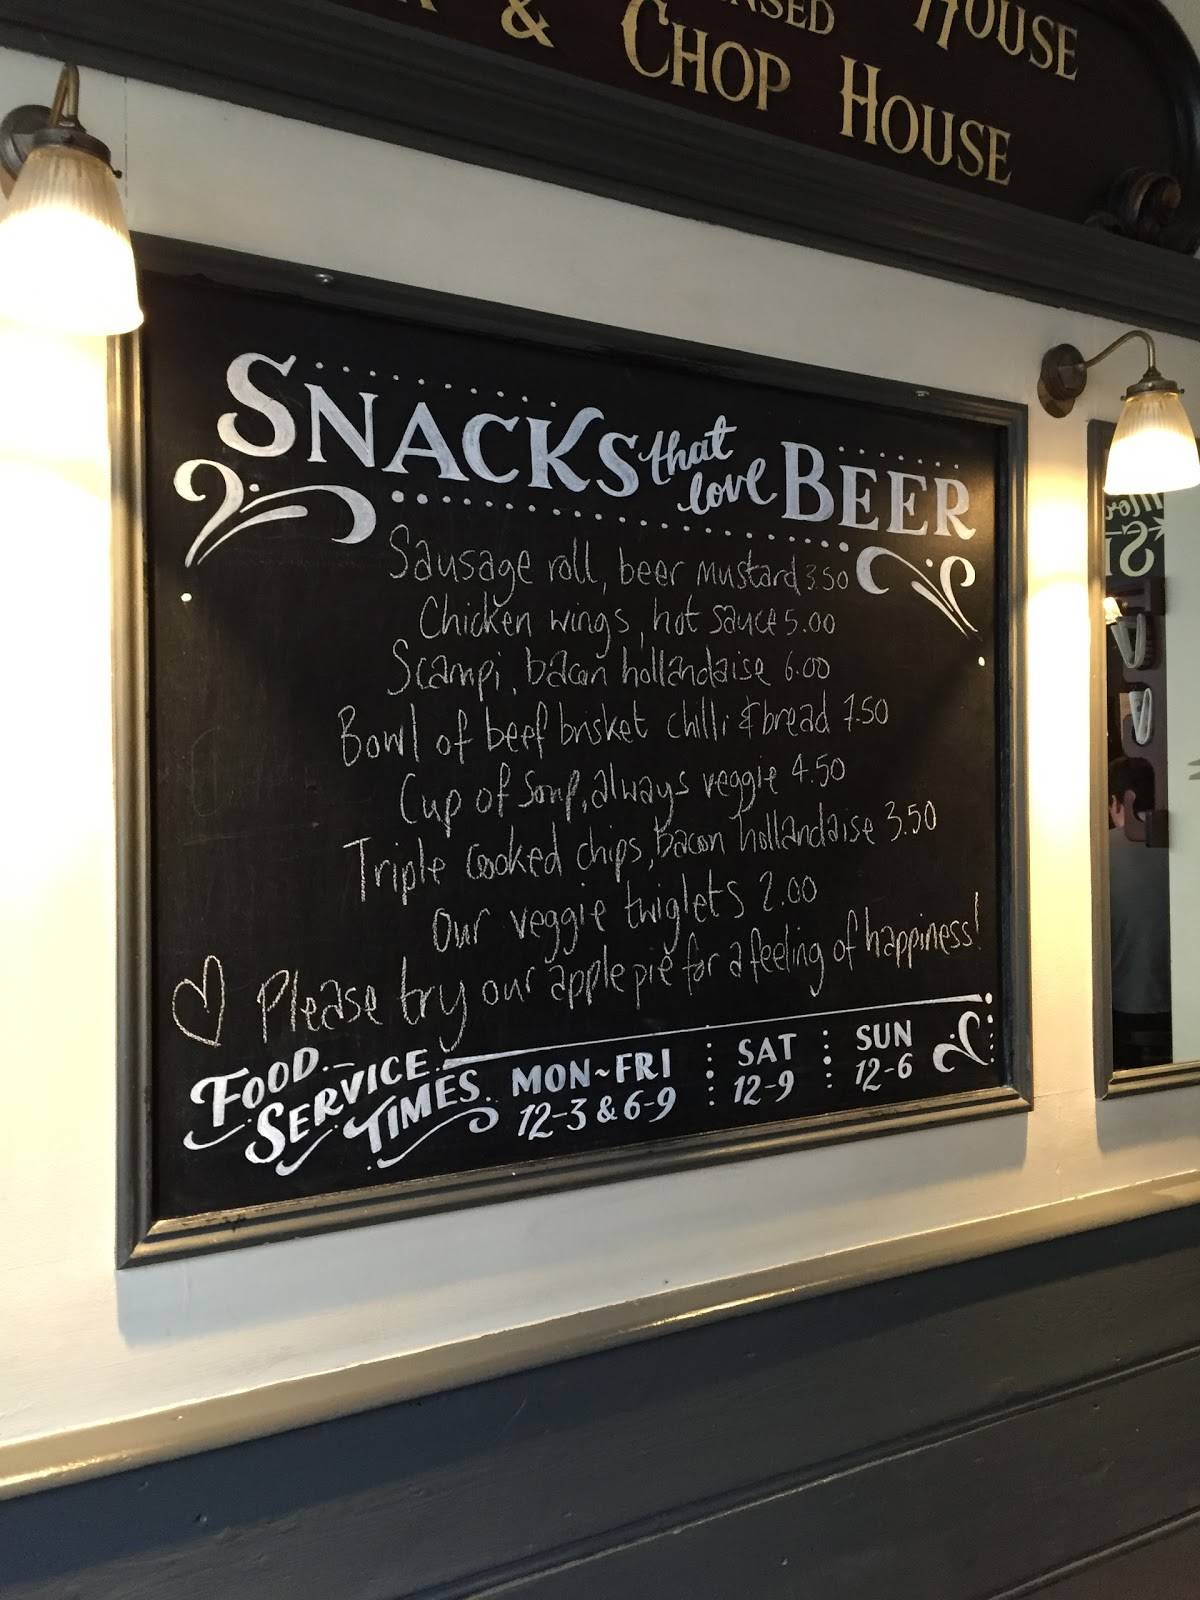 HOUSE
& CHOP HOUSE
SNACKS that love BEER
Sausage roll, beer mustard 3.50
Chicken wings, hot sauce 5.00
Scampi, bacon hollandaise 6.00
Bowl of beef brisket chilli & bread 7.50
Cup of soup, always veggie 4.50
Triple cooked chips, bacon hollandaise 3.50
Our veggie twiglets 2.00
Please try our apple pie for a feeling of happiness!
FOOD SERVICE TIMES
MON~FRI
12-3 & 6-9
SAT
12-9
SUN
12-6